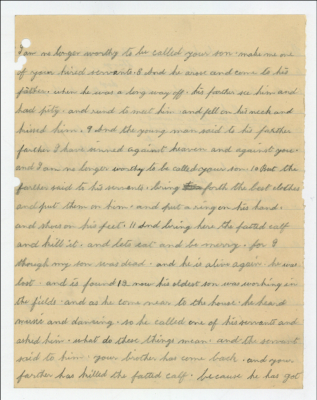 I am no longer worthy to be called your son. make me one
of your hired servants. 8 And he arose and come to his
father. when he was a long way off. his farther see him and
had pity. and runed to meet him. and fell on his neck and
kissed him. 9 And the young man said to his farther
farther I have sinned against heaven and against you.
and I am no longer worthy to be called your son. 10 But the
farther said to his servants. bring forth the best clothes
and put them on him. and put a ring on his hand.
and shoes on his feet. 11 And bring here the fatted calf
and kill it. and lets eat and be merry. for I
though my son was dead. and he is alive again. he was
lost. and is found 13. now his oldest son was working in
the fields. and as he come near to the house. he heard
music and dancing. so he called one of his servants and
asked him. what do these things mean. and the servant
said to him. your brother has come back. and your
farther has killed the fatted calf. because he has got